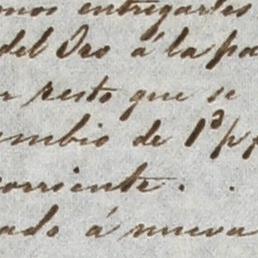 mos entregarles
del Oro á la pa
resto que se
ambio de 1ª p
corriente.
ado á nueva